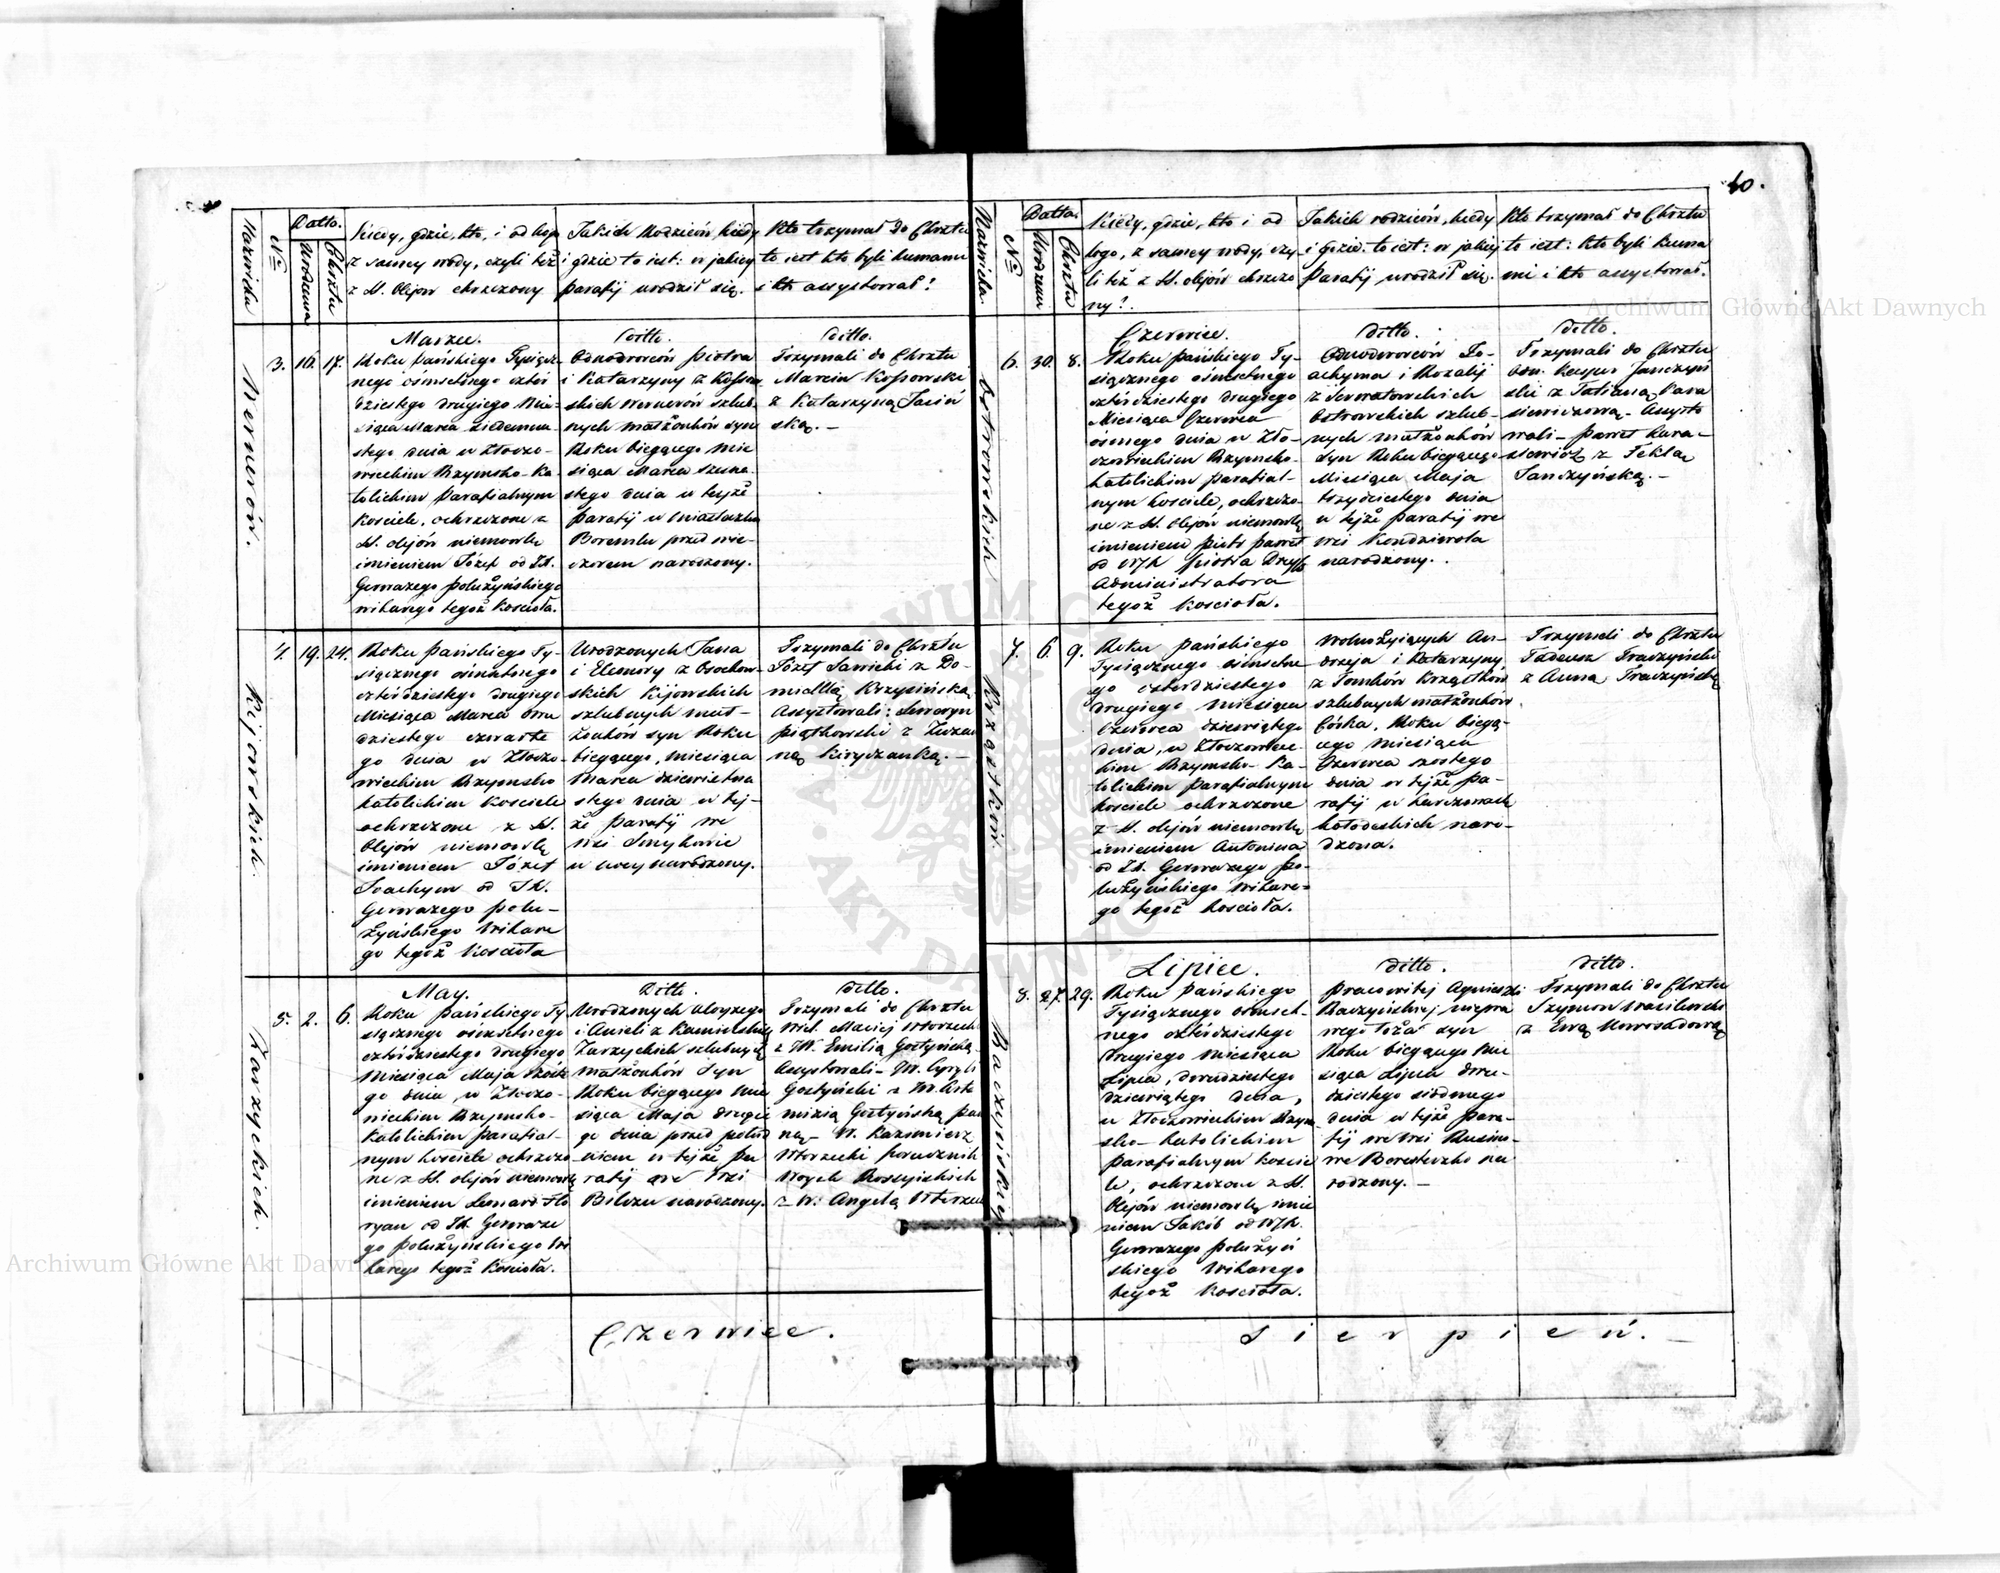 40.
Nazwiska
No
Datto.
Urodzenia
Chrztu
Kiedy, gdzie, kto, i od kogo
z samey wody, czyli też
z S. Olejów chrzczony
Jakich Rodziców, kiedy
i gdzie to iest: w jakiey
parafij urodził się.
Kto trzymał do Chrztu
to iest kto byli kumami
i kto assystował?
Wernerów.
3.
16.
17.
Marzec.
Roku Pańskiego Tysiącz-
nego ośmsetnego czter
dziestego drugiego Mie-
siąca Marca siedemna-
stego dnia w Złoczo-
wieckim Rzymsko-Ka-
tolickim Parafialnym
Kosciele, ochrzczone z
S. olejów niemowle
imieniem Józef od JX.
Gerwazego Połużyńskiego
wikarego tegoż Kosciola.
Ditto.
Odnodworców Piotra
i Katarzyny z Kossow-
skich Wernerów szlub-
nych małżonków syn
Roku biegącego mie
siąca Marca szesna-
stego dnia w teyże
parafij w Miasteczku
Boremlu przed wie-
czorem narodzony.
Ditto.
Trzymali do Chrztu
Marcin Kossowski
z Katarzyną Jasin
ską. -
Kijowskich.
4.
19.
24.
Roku Pańskiego Ty-
siącznego ośmsetnego
czterdziestego drugiego
Miesiąca Marca dwu
dziestego czwarte
go dnia w Złoczo-
wieckim Rzymsko
katolickim Kosciele
ochrzczone z S.
Olejów niemowlę
imieniem Józef
Joachym od JX.
Gerwazego Połu-
żyńskiego Wikare
go tegoż Kosciola
Urodzonych Jana
i Eleonory z Osochow-
skich Kijowskich
szlubnych mał-
żonków syn Roku
biegącego, miesiąca
Marca dziewietna
stego dnia w tej-
że Parafij we
wsi Smykowie
w nocy narodzony.
Trzymali do Chrztu
Józef Sawicki z Do-
micellą Krzysińską
Assystowali: Seweryn
Piątkowski z Zuzan
ną Kiryczanką. -
Zarzyckich.
5.
2.
6.
May.
Roku Pańskiego Ty-
siącznego ośmsetnego
czterdziestego drugiego
Miesiąca Maja szoste
go dnia w Złoczo-
wieckim Rzymsko-
Katolickim parafial-
nym kosciele ochrzczo
ne z S. olejów niemowlę
imieniem Leonard Flo
ryan od JX. Gerwaze
go Połużyńskiego Wi
karego tegoż Kosciola.
Ditto.
Urodzonych Aloyzego
i Anieli z Kamińskich
Zarzyckich szlubnych
małżonków syn
Roku biegącego mie
siąca Maja drugie
go dnia przed połud
niem w tejże pa
rafij we wsi
Bilczu narodzony.
Ditto.
Trzymali do Chrztu
Wiel. Maciej
z W. Emilią Gostyńską
Assystowali- W. Cyryli
Gostyński z W. Arte
mizią Gostyńską pan
ną- W. Kazimierz
porucznik
Woysk Rossyiskich
z W: Angelą
Czerwiec.
Nazwiska.
No
Datta.
Urodzenia
Chrztu
Kiedy, gdzie, kto i od
kogo, z samey wody, czy-
li też z S. olejów chrzczo
ny?.
Jakich rodziców, kiedy
i gdzie. to iest: w jakiey
parafij urodził się.
Kto trzymał do Chrztu
to iest: kto byli kuma
mi i kto assystował.
Ostrowskich
6.
30.
8.
Czerwiec.
Roku Pańskiego Ty-
siącznego ośmsetnego
czterdziestego drugiego
Miesiąca Czerwca
ósmego dnia w Zło-
czowieckim Rzymsko-
katolickim Parafial-
nym kosciele, ochrzczo-
ne z S. Olejów niemowlę
imieniem Piotr Paweł
od WJX Piotra
Administratora
tegoż Kosciola.
Ditto.
Odnodworców Jo-
achyma i Rozalij
z Serwatowskich
Ostrowskich szlub-
nych małżonków
syn Roku biegącego
Miesiąca Maja
trzydziestego dnia
w tejże parafij we
wsi Kondziwola
narodzony.
Ditto.
Trzymali do Chrztu
Odn. Kasper Janczyń
ski z Tatianą Kara
siewiczową- Assysto
wali- Paweł Kara-
siewicz z Teklą
Janczyńską. -
Krząstków.
7.
6.
9.
Roku Pańskiego
Tysiącznego ośmsetne
go czterdziestego
drugiego miesiąca
Czerwca dziewiątego
dnia, w Złoczowiec-
kim Rzymsko-Ka-
tolickim parafialnym
kosciele ochrzczone
z S. olejów niemowlę
imieniem Antonina
od JX. Gerwazego Po-
łużyńskiego Wikare-
go tegoż kosciola.
Wolnożyiących An-
drzeja i Katarzyny
z Tomków Krząstków
szlubnych małżonków
Córka, Roku biegą-
cego miesiąca
Czerwca szostego
dnia w tejże pa-
rafij w
naro-
dzona.
Trzymali do Chrztu
Tadeusz Traczyński
z Anna Traczyńską
Raczyńskiej.
8.
27.
29.
Lipiec.
Roku Pańskiego
Tysiącznego ośmset-
nego czterdziestego
drugiego miesiąca
Lipca, dwudziestego
dziewiątego dnia,
w Złoczowieckim Rzym-
sko-Katolickim
parafialnym koscie
le, ochrzczone z S.
Olejów niemowlę imie
niem Jakób od WJX.
Gerwazego Połużyń
skiego Wikarego
tegoż Kosciola.
Ditto.
Pracowitej Agnieszki
Raczyńskiej niepra
wego łoża syn
Roku biegącego mie
siąca Lipca dwu-
dziestego siódmego
dnia w tejże para-
fij we wsi Rusino-
we Beresteczko na
rodzony. -
Ditto.
Trzymali do Chrztu
Szymon Wasilewski
z Ewą Nowosadową
Sierpień. -
Archiwum Główne Akt Dawnych
Archiwum Główne Akt Dawnych